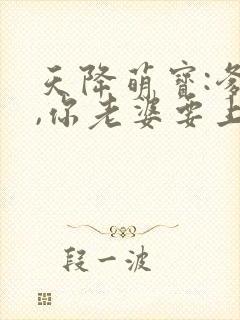 天降萌寶:爹
,你老婆要上
段一波